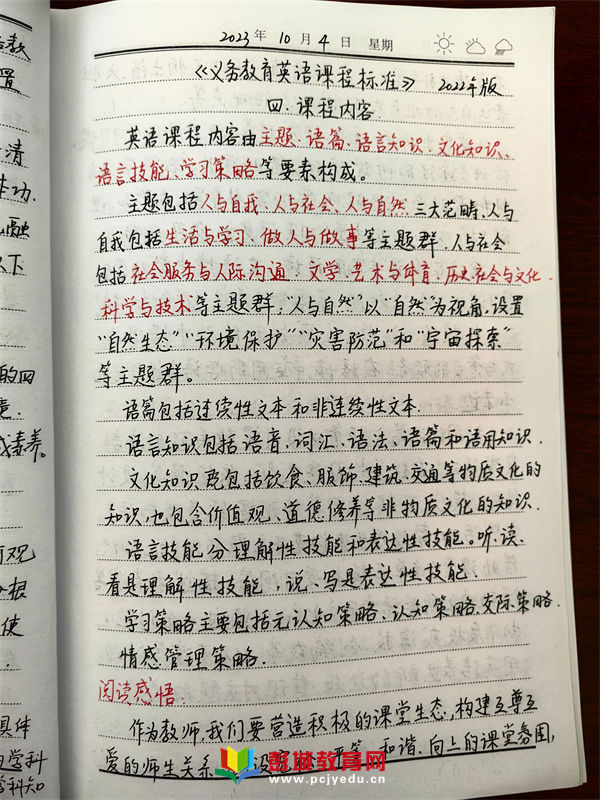 2023年 10月 4日 星期
《义务教育英语课程标准》 2022年版
四.课程内容.
英语课程内容由主题.语篇.语言知识.文化知识、
语言技能、学习策略等要素构成。
主题包括人与自我.人与社会、人与自然三大范畴.人与
自我包括生活与学习.做人与做事等主题群.人与社会
包括社会服务与人际沟通.文学.艺术与体育.历史.社会与文化.
科学与技术等主题群,"人与自然"以"自然"为视角,设置
"自然生态""环境保护""灾害防范"和"宇宙探索"
等主题群。
语篇包括连续性文本和非连续性文本.
语言知识包括语音.词汇.语法、语篇和语用知识.
文化知识既包括饮食、服饰.建筑.交通等物质文化的
知识,也包含价值观、道德修养等非物质文化的知识.
语言技能分理解性技能和表达性技能。听.读.
看是理解性技能,说、写是表达性技能.
学习策略主要包括元认知策略、认知策略.交际策略.
情感管理策略.
阅读感悟:
作为教师,我们要营造积极的课堂生态,构建互尊互
爱的师生关系 设定 平等、和谐.向上的课堂氛围,
教
置
清
功.
融
以下
的四
意.
素养。
观
根
使
具体
学科
学科知
彭城教育网
www.pcjyedu.cn